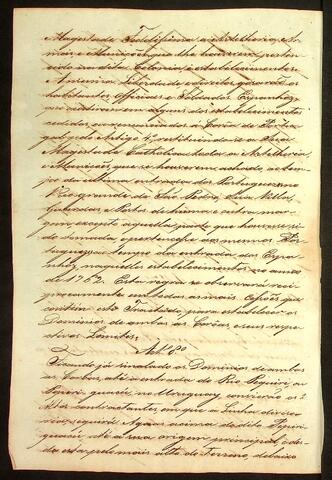 Magestade Fidelissima a Artelheria, Mu-
niçoens que lhe houverem perten-
cido na dita Colonia, e estabelecimentos.
A mesma liberdade e direitos gozarão os
habitantes, Officiaes e Soldados Espanhoes,
que existirem em algum dos estabelecimentos
cedidos, ou renunciados á Corôa de Portu-
gal pelo Artigo 4º restituindo-se a Sua
Magestade Catholica toda a Artelheria
e Muniçoens, que se houverem achado, ao tem-
po da ultima entrada dos Portuguezes no
Rio grande de São Pedro, Sua Villa,
Guardas e Postos de huma e outra mar-
gem, excepto aquella parte que houvesse si-
do tomada, e pertencesse aos mesmos Por-
tuguezes ao tempo da entrada dos Espa-
nhoes naquelles estabelecimentos no anno
de 1762. Esta regra se observará reci-
procamente em todas as mais Cessões que
contém este Tratado, para estabelecer os
Dominios de ambas as Corôas, e seus respe-
ctivos Limites.
Art. 8º
Ficando já sinalados os Dominios de ambas
as Corôas, até a entrada do Rio Pepiri, ou
Pepiri-guaçú, no Uruguay, convierão os 2
Altos contractantes, em que a Linha diviso-
ria, seguirá aguas acima do dito Pepiri-
guaçú até a sua origem principal, e des-
de esta, pelo mais alto do Terreno, debaixo